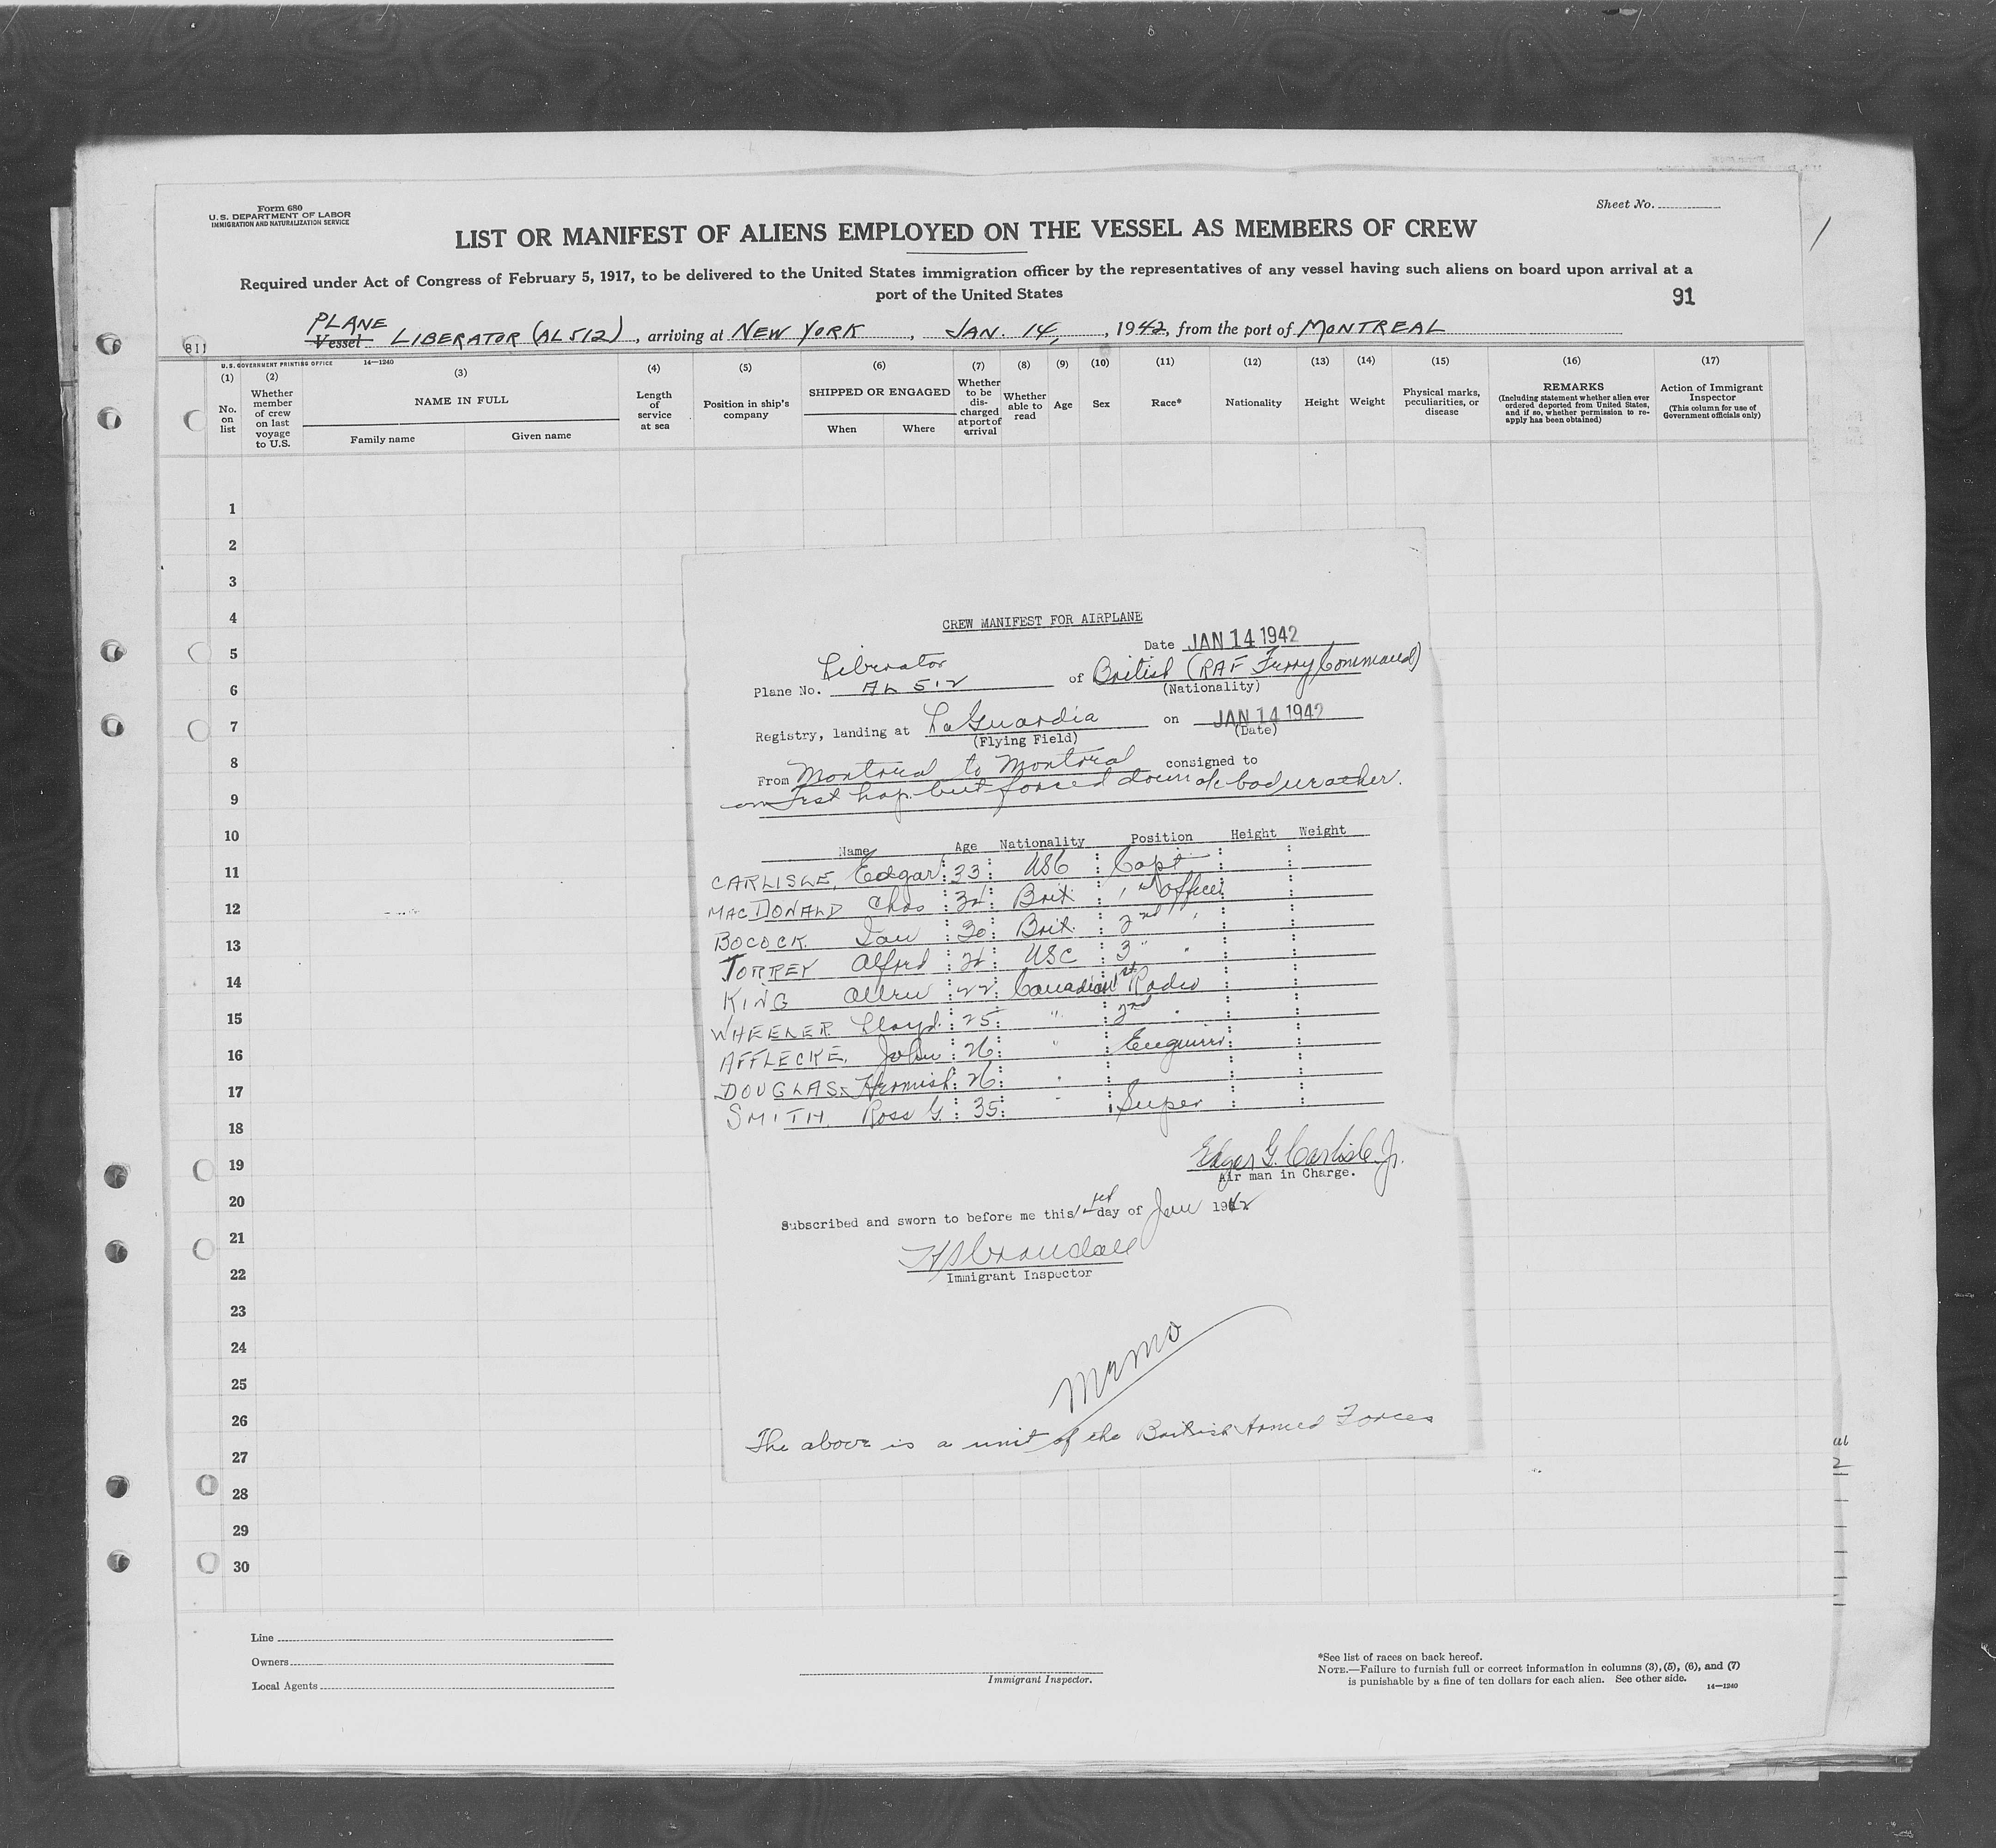 Form 680
U. S. DEPARTMENT OF LABOR
IMMIGRATION AND NATURALIZATION SERVICE
Sheet No.
LIST OR MANIFEST OF ALIENS EMPLOYED ON THE VESSEL AS MEMBERS OF CREW
Required under Act of Congress of February 5, 1917, to be delivered to the United States immigration officer by the representatives of any vessel having such aliens on board upon arrival at a
port of the United States
91
PLANE
Vessel LIBERATOR (AL512), arriving at NEW YORK, JAN. 14, 1942, from the port of MONTREAL
811
U. S. GOVERNMENT PRINTING OFFICE 14—1240
(1) (2) (3) (4) (5) (6) (7) (8) (9) (10) (11) (12) (13) (14) (15) (16) (17)
No. on list
Whether member of crew on last voyage to U.S.
NAME IN FULL
Family name Given name
Length of service at sea
Position in ship's company
SHIPPED OR ENGAGED
When Where
Whether to be discharged at port of arrival
Whether able to read
Age
Sex
Race*
Nationality
Height
Weight
Physical marks, peculiarities, or disease
REMARKS
(Including statement whether alien ever ordered deported from United States, and if so, whether permission to re-apply has been obtained)
Action of Immigrant Inspector
(This column for use of Government officials only)
1
2
3
4
5
6
7
8
9
10
11
12
13
14
15
16
17
18
19
20
21
22
23
24
25
26
27
28
29
30
CREW MANIFEST FOR AIRPLANE
Date JAN 14 1942
Liberator
Plane No. AL 512 of British (RAF Ferry Command)
(Nationality)
Registry, landing at LaGuardia on JAN 14 1942
(Flying Field) (Date)
From Montreal to Montreal consigned to
on test hop but forced down a/c bad weather.
Name Age Nationality Position Height Weight
CARLISLE, Edgar 33 USC Capt
MACDONALD Chas Brit 1st Officer
BOCOCK Ian 30 Brit. 2nd "
TORREY Alford USC 3 " "
KING Allen 22 Canadian 1st Radio
WHEELER Lloyd 25 " 2nd "
AFFLECKE, John 26 "
DOUGLAS Hamish 26 "
SMITH Ross G. 35 " Super
Edgar G. Carlisle Jr.
Air man in Charge.
Subscribed and sworn to before me this day of Jan 1942
Crandall
Immigrant Inspector
Memo
The above is a unit of the British Armed Forces
Line
Owners
Local Agents
Immigrant Inspector.
*See list of races on back hereof.
NOTE.—Failure to furnish full or correct information in columns (3), (5), (6), and (7)
is punishable by a fine of ten dollars for each alien. See other side.
14—1240